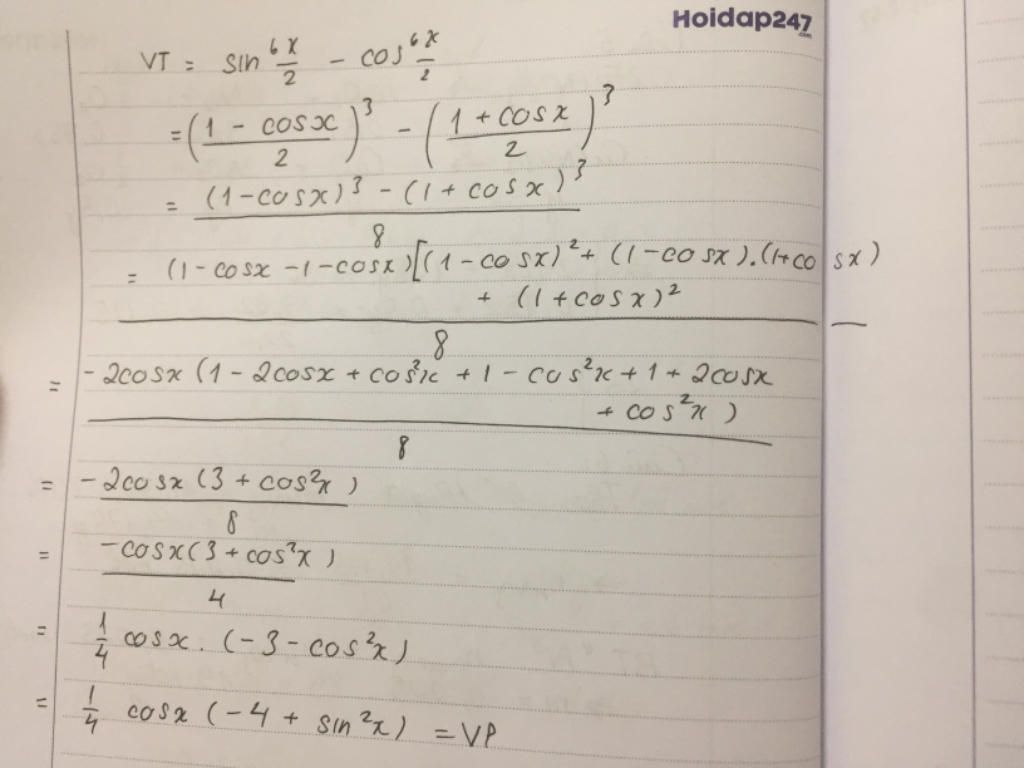 Hoidap247
.com
VT = sin⁶ x/2 - cos⁶ x/2
= ((1 - cosx)/2)³ - ((1 + cosx)/2)³
= ((1-cosx)³ - (1 + cosx)³)/8
= (1-cosx-1-cosx)[(1-cosx)²+ (1-cosx).(1+cosx)
+ (1+cosx)²
8
= -2cosx (1 - 2cosx + cos²x + 1 - cos²x + 1 + 2cosx
+ cos²x)
8
= -2cosx (3 + cos²x)
8
= -cosx(3 + cos²x)
4
= 1/4 cosx. (-3 - cos²x)
= 1/4 cosx (-4 + sin²x) = VP